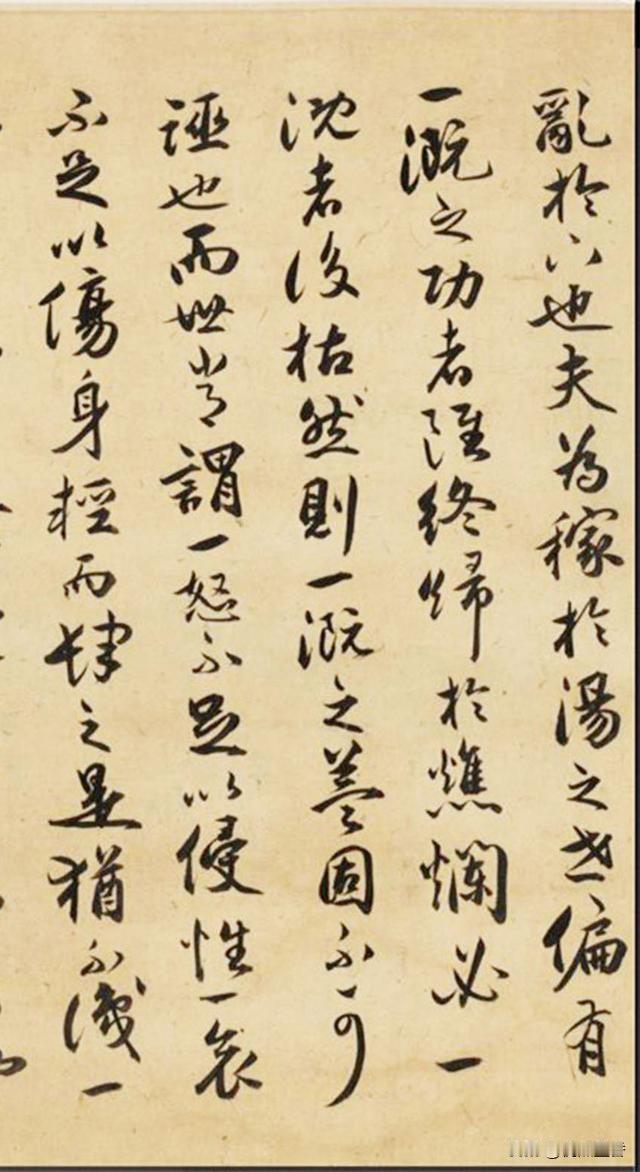 亂於下也夫為稼於湯之世偏有
一溉之功者雖終歸於燋爛必一
溉者後枯然則一溉之益固不可
誣也而世常謂一怒不足以侵性一哀
不足以傷身輕而肆之是猶不識一